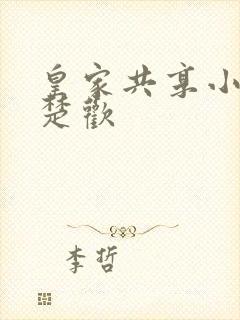 皇家共享小
楚歡
李哲